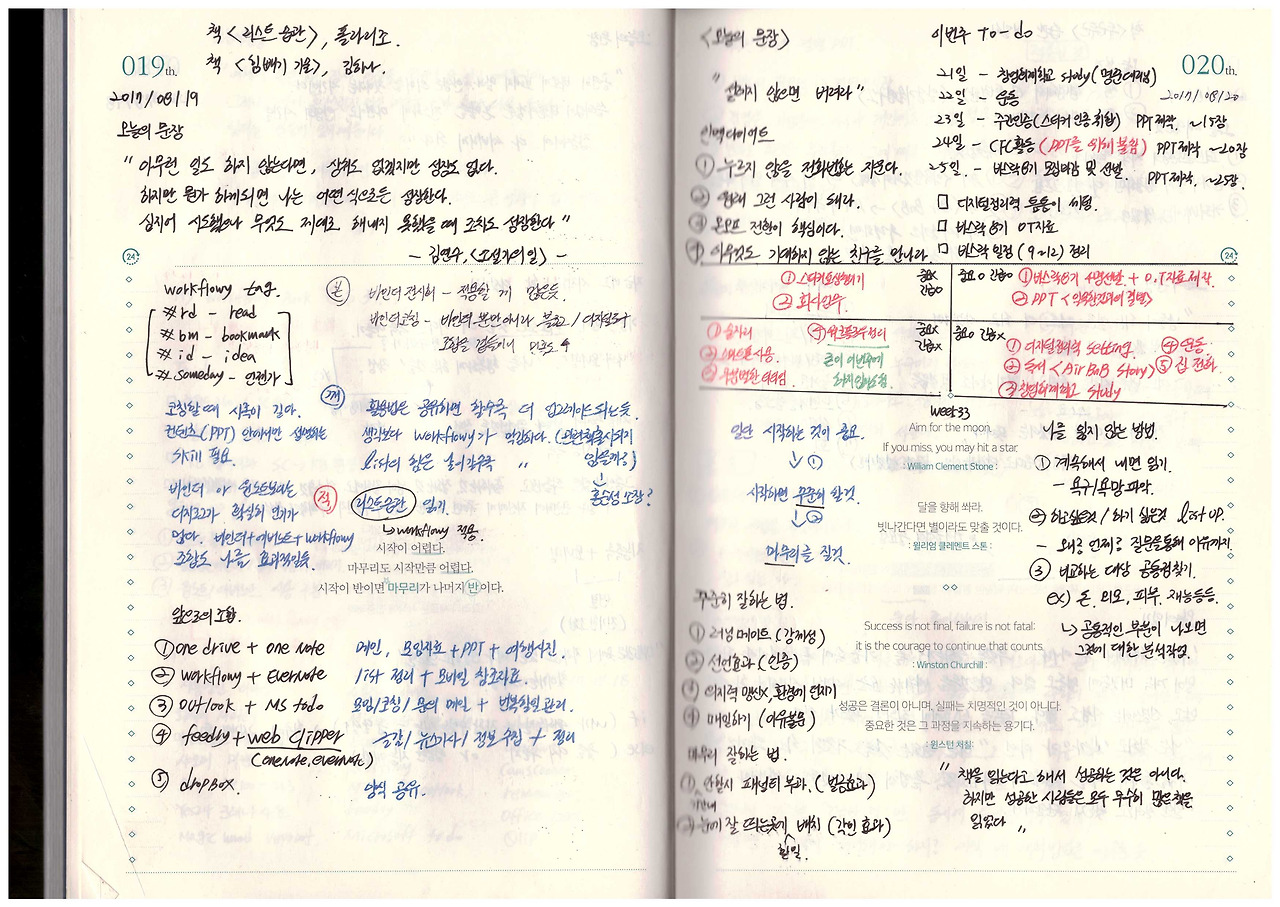 책 <리스트 습관>, 폴라리스.
책 <힘빼기 기술>, 김하나.
019th.
2017/08/19
오늘의 문장
" 아무런 일도 하지 않는다면, 상처도 없겠지만 성장도 없다.
하지만 뭔가 하게되면 나는 어떤 식으로든 성장한다.
심지어 시도했으나 무엇도 제대로 해내지 못했을 때 조차도 성장한다 "
- 김연수, <소설가의 일> -
24
workflowy tag.
#rd - read
#bm - bookmark
#id - idea
#someday - 언젠가
본
바인더 전시회 - 적용할 게 많은듯.
바인더코칭 - 바인더 뿐만 아니라 블로그/디지털도구
조합을 겸들여서 만족도 4
깨
코칭할때 시죽이 길다.
컨텐츠(PPT) 안에서만 설명하는
skill 필요.
활용법은 공유하면 할수록 더 업그레이드되는듯.
생각보다 workflowy가 막강하다.
list의 힘은 늘어갈수록 "
바인더 아 원노트보다는
디지로그가 확실히 인기가
많다. 바인더+에버노트+workflowy
조합도 나름 효과적인듯.
적
리스트습관 읽기.
↳ workflowy 적용.
시작이 어렵다.
마무리도 시작만큼 어렵다.
시작이 반이면 마무리가 나머지 반이다.
앞으로의 조합.
① one drive + one note 메인, 모임자료 + PPT + 여행사진.
② workflowy + Evernote list 정리 + 모바일 참고자료.
③ OUtlook + MS todo 모임/코칭/문의 메일 + 반복할일 관리.
④ feedly + web clipper 글감/뉴스기사/정보 수집 + 정리
(onenote, evernote)
⑤ dropbox. 양식 공유.
<오늘의 문장>
" 설레지 않으면 버려라 "
인맥다이어트
① 누르지 않을 전화번호는 지운다.
② 원래 그런 사람이 돼라.
③ 온오프 전환이 핵심이다.
④ 아무것도 기대하지 않는 친구를 만나라.
이번주 to-do
020th.
2017/08/20
21일 - 창업회계학교 study
22일 - 운동
23일 - 주간인증(스티커 인증취합) PPT제작, ~15장
24일 - CFC활동 (PPT를 위해 불참) PPT제작 ~20장
25일 - 버스락8기 모집마감 및 선발. PPT제작, ~25장.
□ 디지털정리력 틈틈이 세팅.
□ 버스락 8기 OT자료
□ 버스락 일정 (9~12) 정리
24
① 스터커보상하기
② 회사업무.
중요X
긴급O
중요O 긴급O
① 버스락8기 4명선발 + O.T자료 제작
② PPT
① 술자리
② 스마트폰 사용.
③ 무분별한 타임
④ 위클로드수정
굳이 이번주에
하지 않아도됨.
중요X
긴급X
중요O 긴급X
① 디지털정리력 setting.
② 독서 <Air BnB Story>
③ 창업회계학교 study
④ 운동.
⑤ 집 전화.
week 33
Aim for the moon.
If you miss, you may hit a star.
: William Clement Stone :
달을 향해 쏴라.
빗나간다면 별이라도 맞출 것이다.
: 윌리엄 클레멘트 스톤 :
일단 시작하는 것이 중요.
↓ ①
시작하면 꾸준히 할것
↓ ②
마무리를 질것.
나를 잃지 않는 방법.
① 계속해서 내면 읽기.
- 욕구/욕망 파악.
② 하고싶은것 / 하기 싫은것 list up.
- 왜? 언제? 질문을통해 이유까지.
③ 비교하는 대상 공통점찾기.
ex) 돈, 외모, 피부, 재능등등.
↳ 공통적인 부분이 나오면
그것에 대한 분석작업.
꾸준히 잘하는 법.
① 러닝 메이트 (강제성)
② 선언효과 (인증)
③ 의지력 맹신X, 환경에 던지기
④ 매일하기 (이유불문)
Success is not final, failure is not fatal:
it is the courage to continue that counts.
: Winston Churchill :
성공은 결론이 아니며, 실패는 치명적인 것이 아니다.
중요한 것은 그 과정을 지속하는 용기다.
: 윈스턴 처칠:
마무리 잘하는 법.
① 안할시 패널티 부과. (벌금효과)
기한내
② 눈에 잘 띄는곳에 배치 (각인 효과)
할일
" 책을 읽는다고 해서 성공하는 것은 아니다.
하지만 성공한 사람들은 모두 무수히 많은책을
읽었다 "